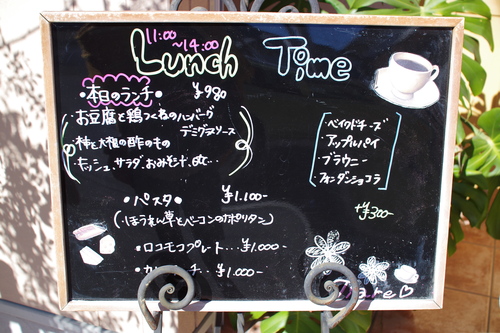 Lunch Time
11:00
~14:00
・本日のランチ・ ¥980
お豆腐と鶏つくねのハンバーグ
デミグラスソース
柿と大根の酢のもの
キッシュ、サラダ、おみそ汁、etc…
・パスタ・ ¥1.100-
(ほうれん草とベーコンのナポリタン)
・ロコモコプレート…¥1.000-
¥1.000-
ベイクドチーズ
アップルパイ
ブラウニー
フォンダンショコラ
+¥300-